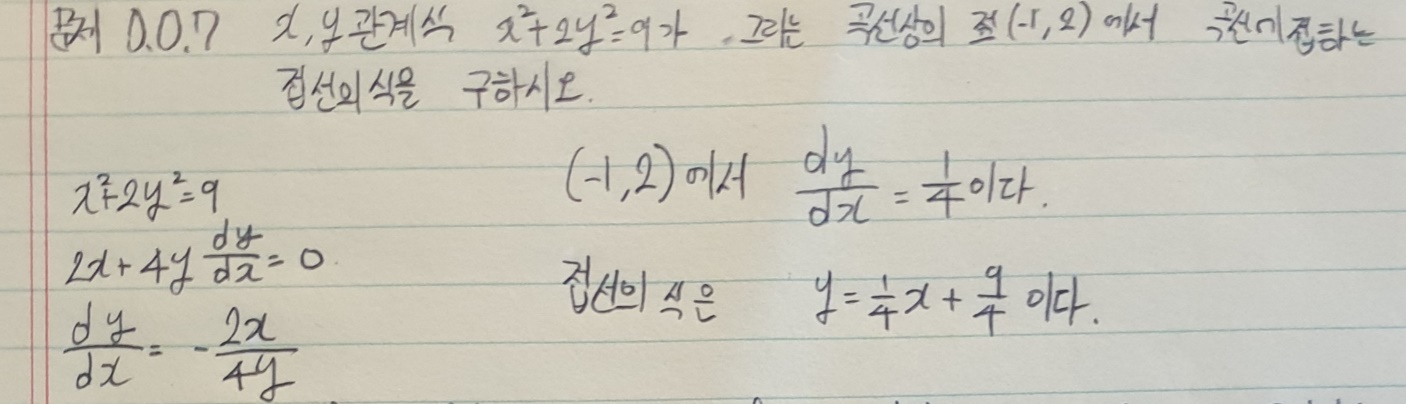 문제 0.0.7 x, y 관계식 x²+2y²=9가 그리는 곡선상의 점(-1, 2)에서 곡선에 접하는
접선의 식을 구하시오.
x²+2y²=9
2x+4y dy/dx = 0
dy/dx = - 2x/4y
(-1, 2)에서 dy/dx = 1/4 이다.
접선의 식은 y = 1/4 x + 9/4 이다.